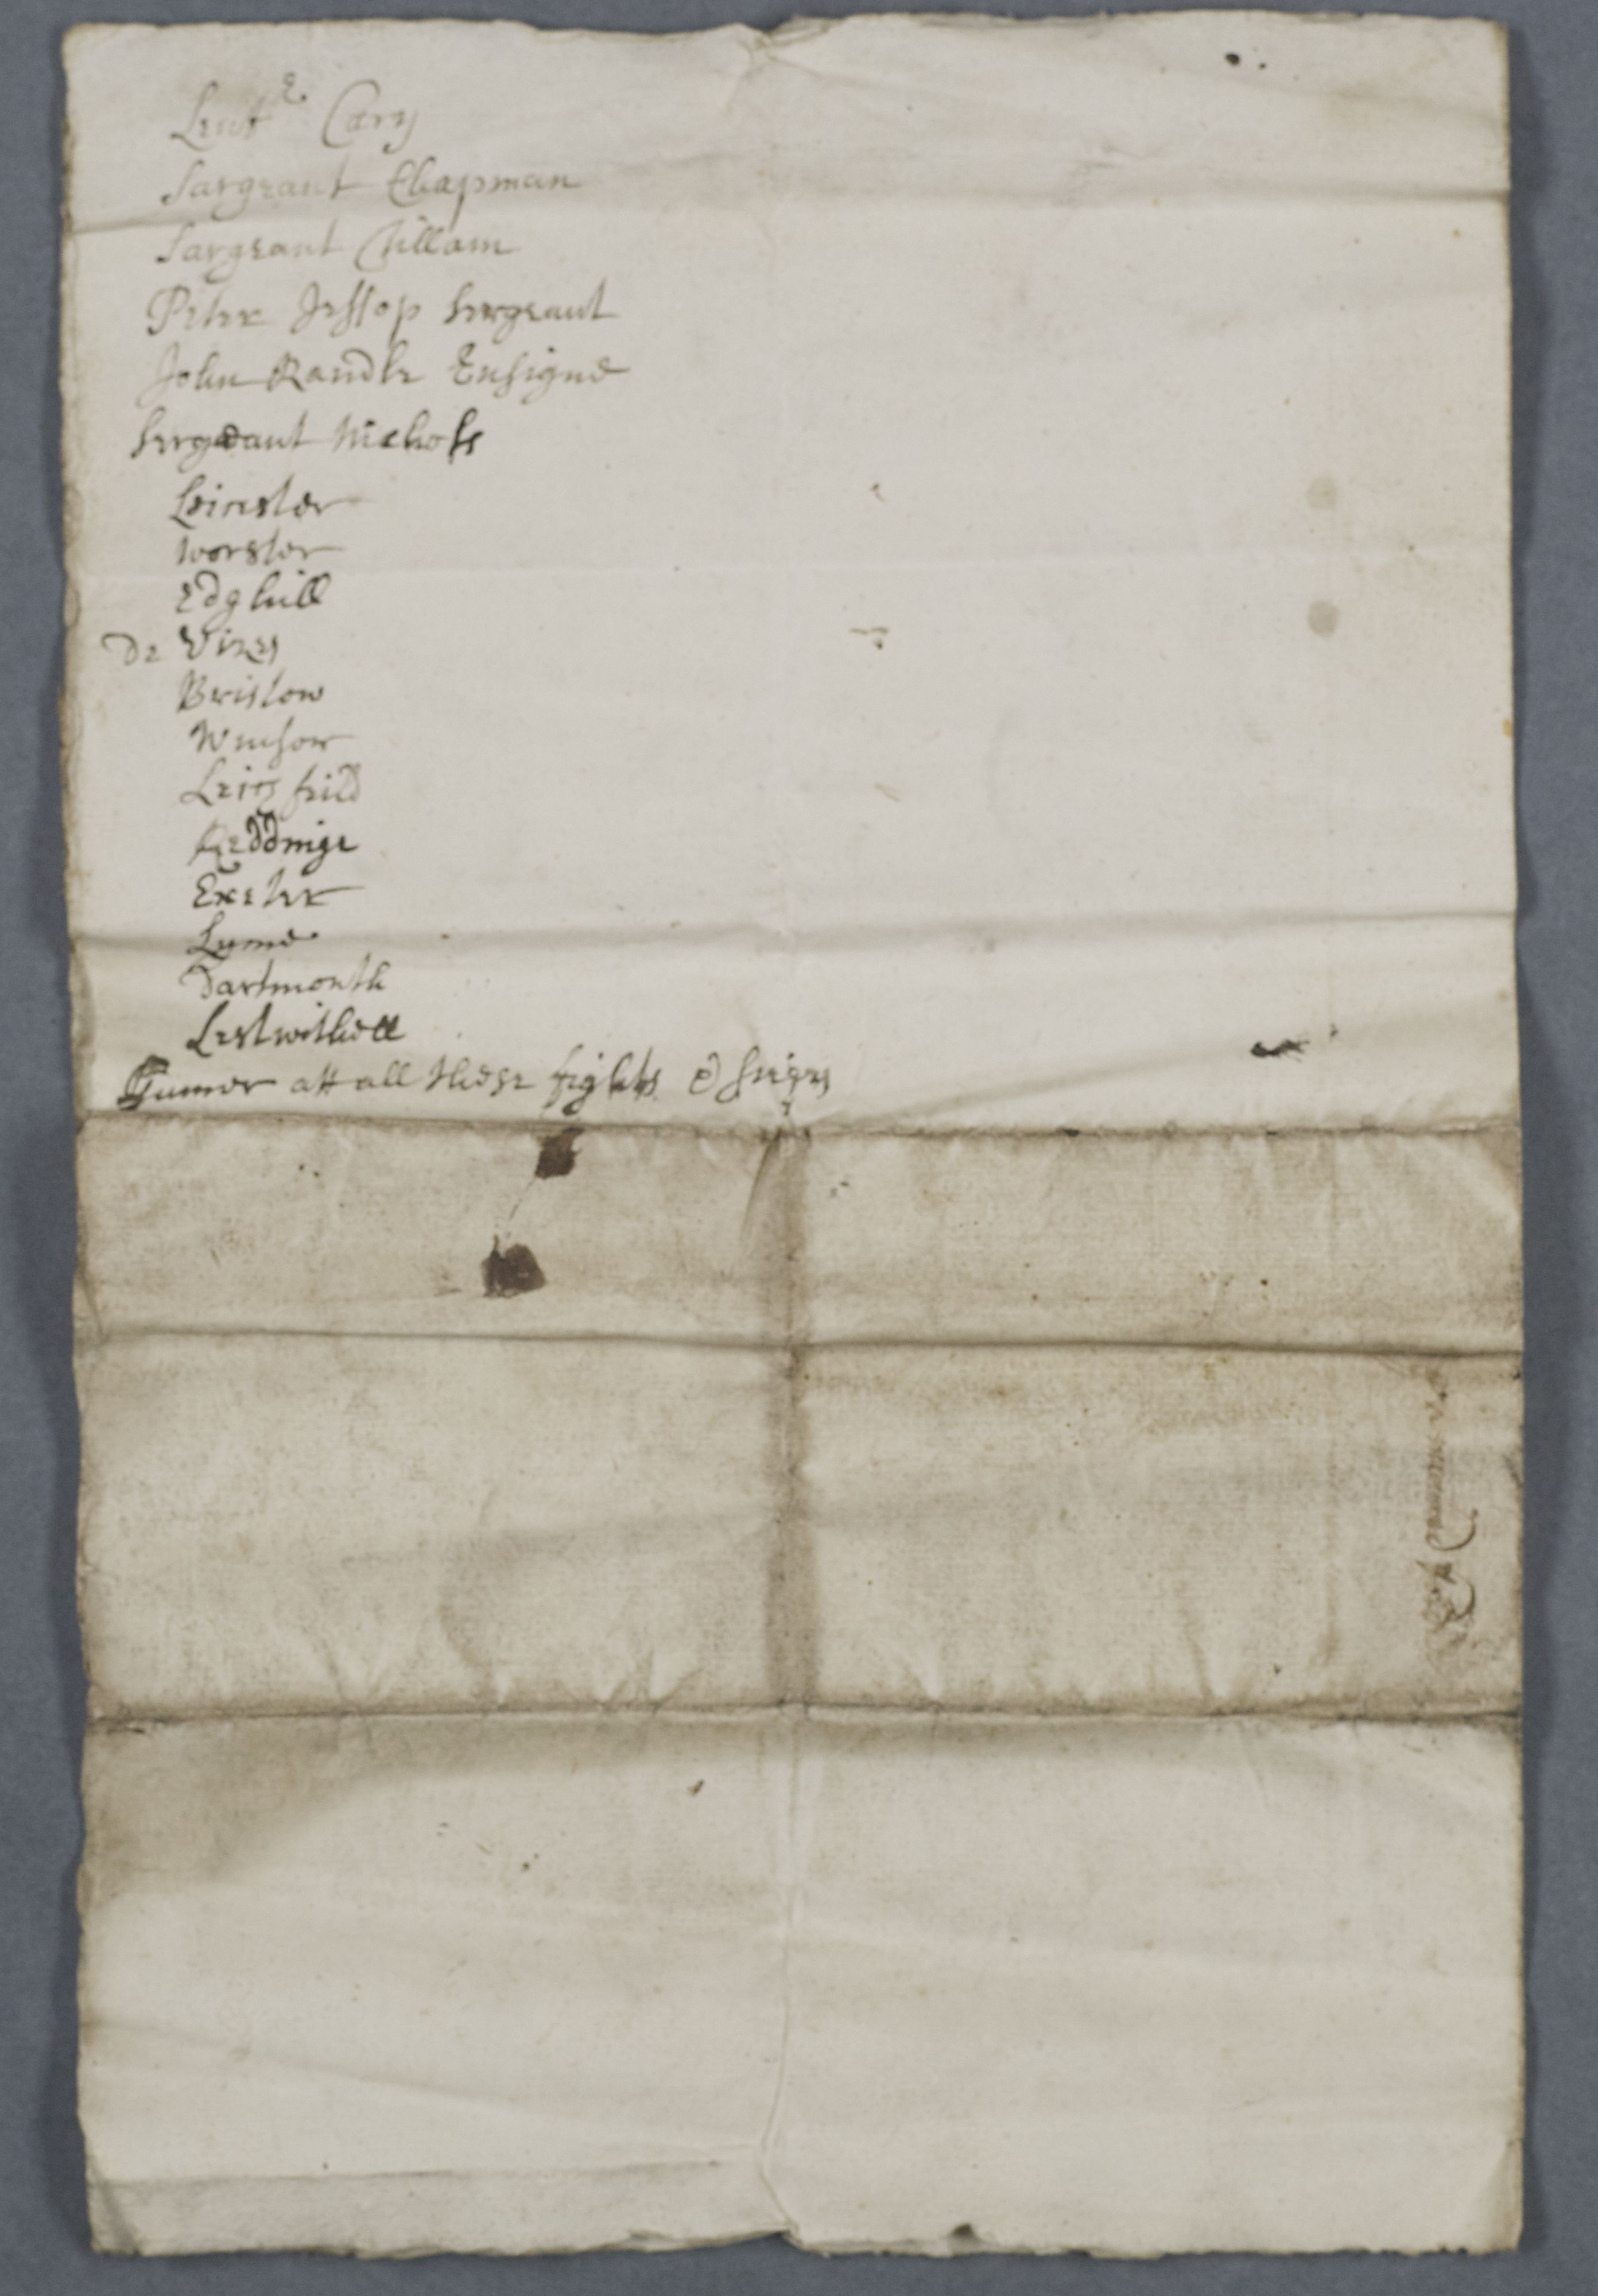 Leut Cary
Sargeant Chapman
Sargeant Cillam
Peter Jessop Sergeant
John Randle Ensigne
Sergeant Nichols
Leicester
worster
Edghill
De Vizes
Bristow
Winsor
Leichfeild
Reddinge
Exeter
Lyme
Dartmouth
Lestwithell
Gunner att all these fights & seiges